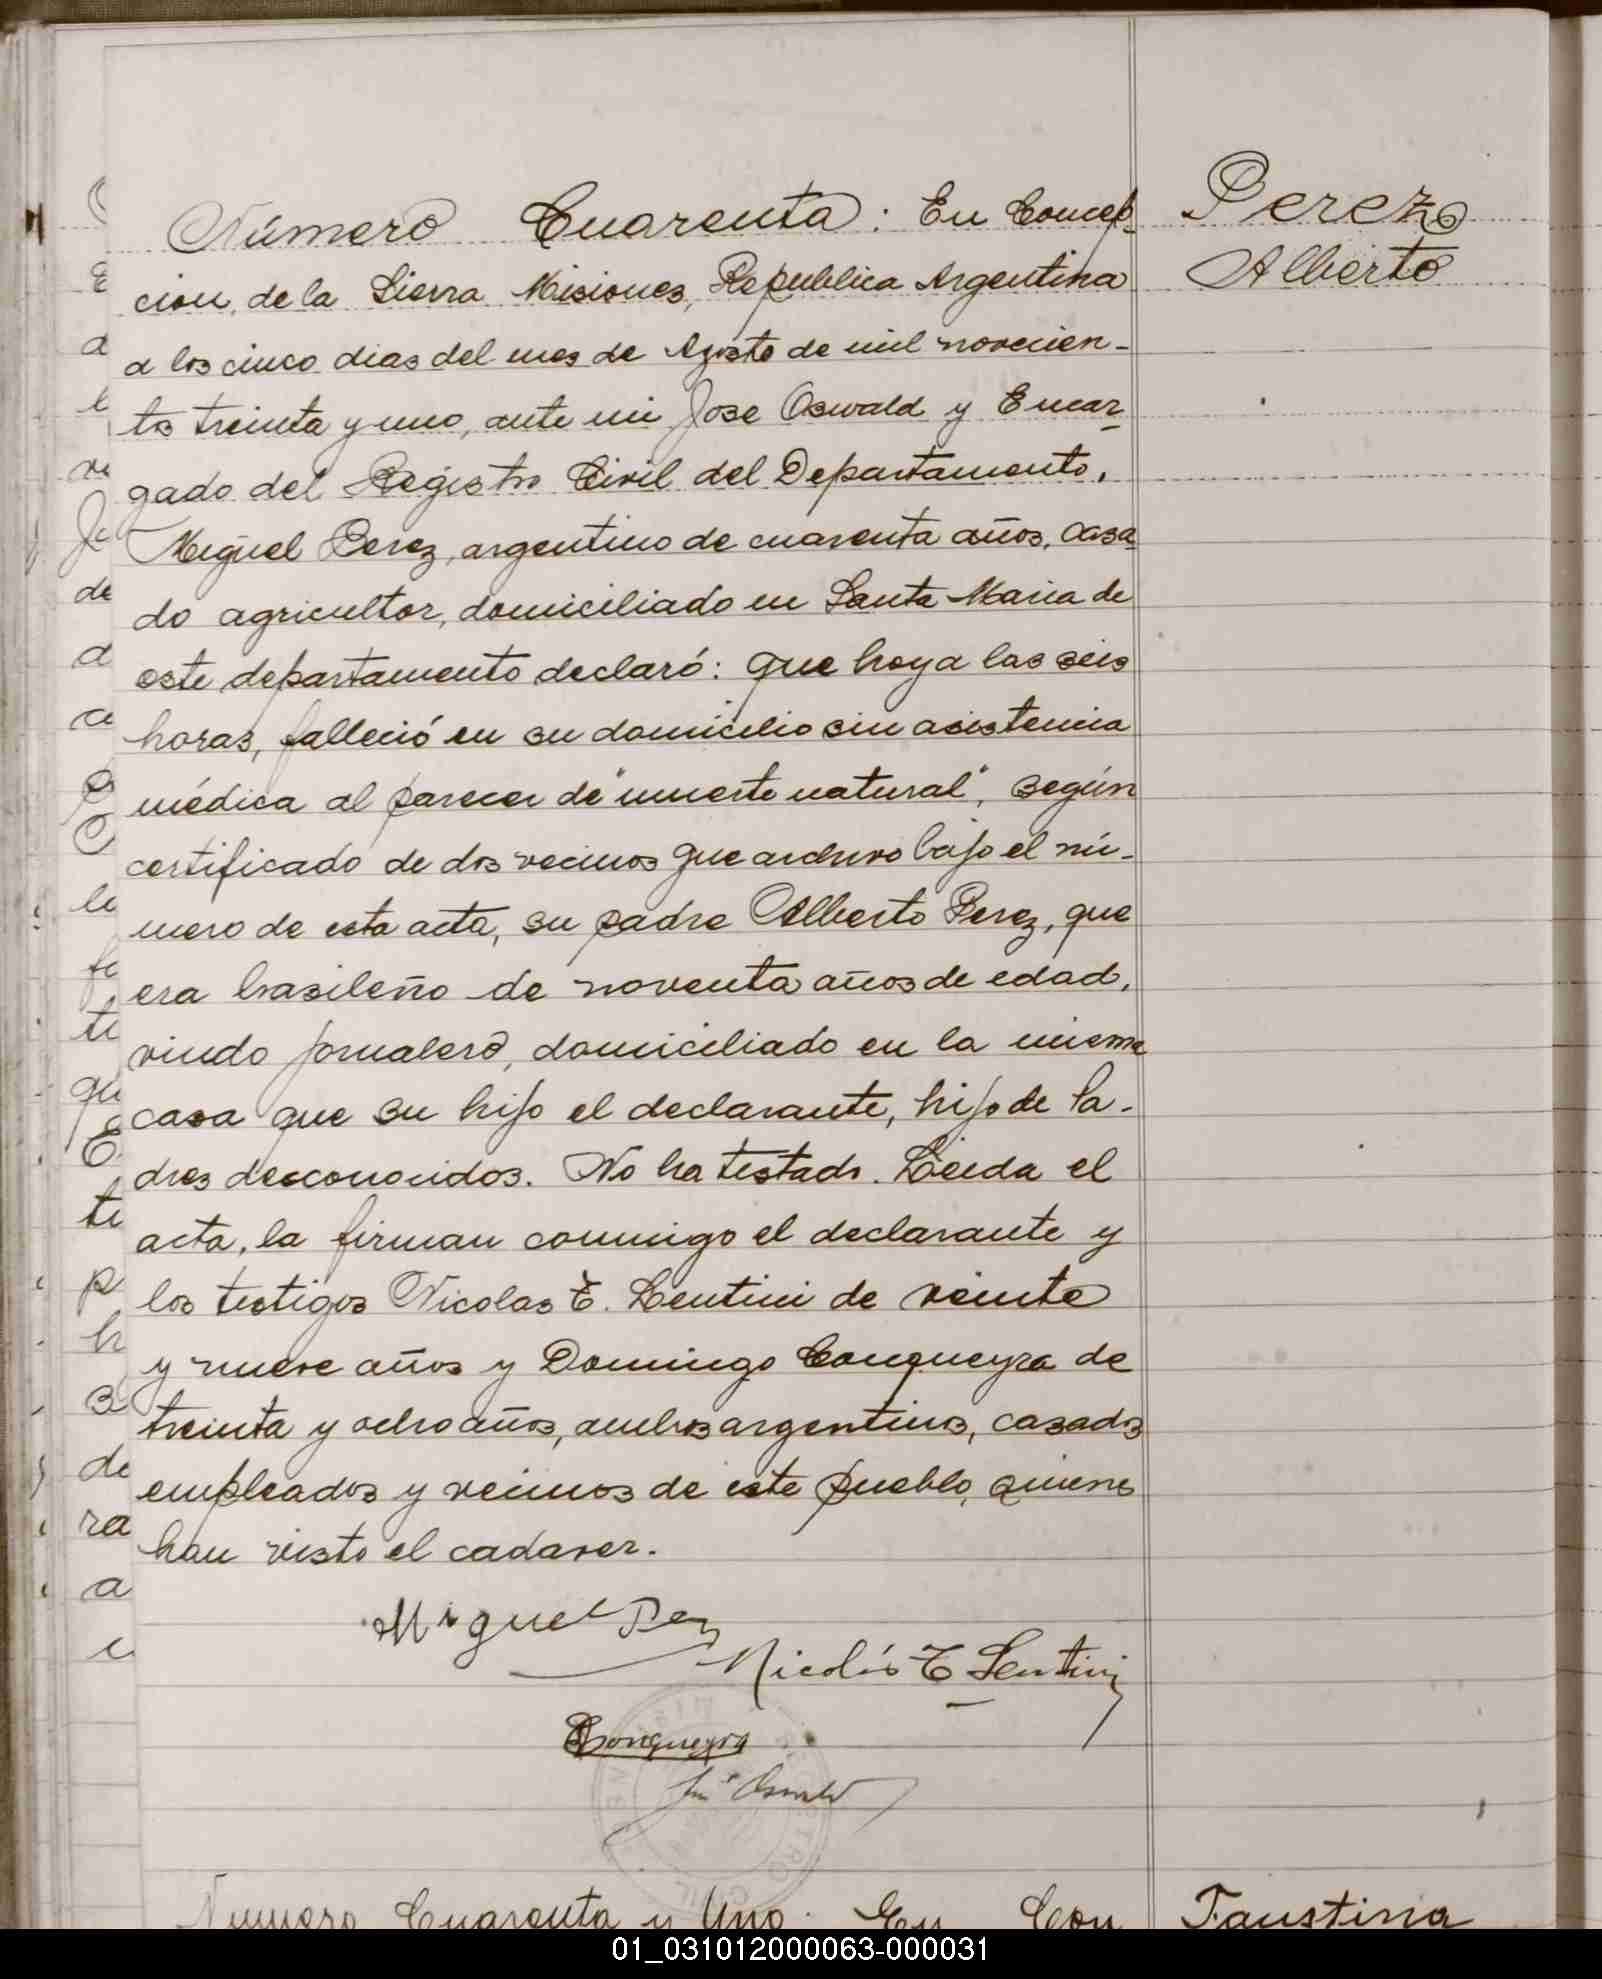 Número Cuarenta: En Concep-
cion, de la Sierra Misiones, Republica Argentina
a los cinco dias del mes de Agosto de mil novecien-
tos treinta y uno, ante mi Jose Oswald y Encar-
gado del Registro Civil del Departamento,
Miguel Perez, argentino de cuarenta años, casa-
do agricultor, domiciliado en Santa Maria de
este departamento declaró: que hoy a las seis
horas, falleció en su domicilio sin asistencia
médica al parecer de "muerte natural", según
certificado de dos vecinos que archivo bajo el nú-
mero de esta acta, su padre Alberto Perez, que
era brasileño de noventa años de edad,
viudo jornalero, domiciliado en la misma
casa que su hijo el declarante, hijo de Pa-
dres desconocidos. No ha testado. Leida el
acta, la firman conmigo el declarante y
los testigos Nicolas E. Lentini de veinte
y nueve años y Domingo Conqueyra de
treinta y ocho años, ambos argentinos, casados
empleados y vecinos de este pueblo, quienes
han visto el cadaver.
Miguel Perez
Nicolás E Lentini
DConqueyra
José Oswald
Perez
Alberto
Numero Cuarenta y Uno: En Con
Faustina
01_031012000063-000031